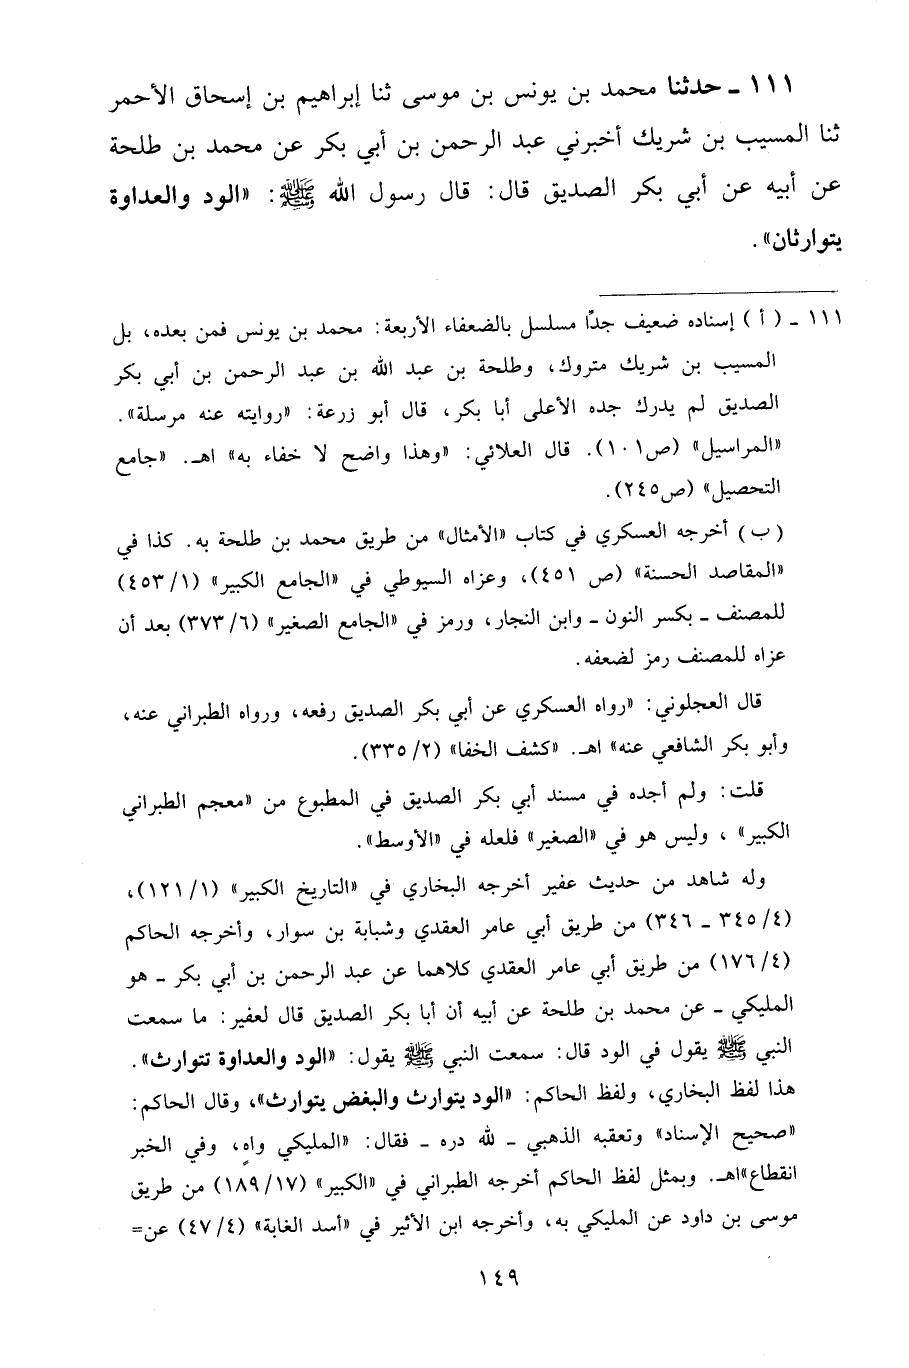 ١١١ ـ حدثنا محمد بن يونس بن موسى ثنا إبراهيم بن إسحاق الأحمر
ثنا المسيب بن شريك أخبرني عبد الرحمن بن أبي بكر عن محمد بن طلحة
عن أبيه عن أبي بكر الصديق قال: قال رسول الله ﷺ: «الود والعداوة
يتوارثان».
١١١ ـ (أ) إسناده ضعيف جدًا مسلسل بالضعفاء الأربعة: محمد بن يونس فمن بعده، بل
المسيب بن شريك متروك، وطلحة بن عبد الله بن عبد الرحمن بن أبي بكر
الصديق لم يدرك جده الأعلى أبا بكر، قال أبو زرعة: «روايته عنه مرسلة».
«المراسيل» (ص١٠١). قال العلائي: «وهذا واضح لا خفاء به» اهـ. «جامع
التحصيل» (ص٢٤٥).
(ب) أخرجه العسكري في كتاب «الأمثال» من طريق محمد بن طلحة به. كذا في
«المقاصد الحسنة» (ص ٤٥١)، وعزاه السيوطي في «الجامع الكبير» (١/ ٤٥٣)
للمصنف ـ بكسر النون ـ وابن النجار، ورمز في «الجامع الصغير» (٦/ ٣٧٣) بعد أن
عزاه للمصنف رمز لضعفه.
قال العجلوني: «رواه العسكري عن أبي بكر الصديق رفعه، ورواه الطبراني عنه،
وأبو بكر الشافعي عنه» اهـ. «كشف الخفا» (٢/ ٣٣٥).
قلت: ولم أجده في مسند أبي بكر الصديق في المطبوع من «معجم الطبراني
الكبير» ، وليس هو في «الصغير» فلعله في «الأوسط».
وله شاهد من حديث عفير أخرجه البخاري في «التاريخ الكبير» (١/ ١٢١)،
(٤/ ٣٤٥ ـ ٣٤٦) من طريق أبي عامر العقدي وشبابة بن سوار، وأخرجه الحاكم
(٤/ ١٧٦) من طريق أبي عامر العقدي كلاهما عن عبد الرحمن بن أبي بكر ـ هو
المليكي ـ عن محمد بن طلحة عن أبيه أن أبا بكر الصديق قال لعفير: ما سمعت
النبي ﷺ يقول في الود قال: سمعت النبي ﷺ يقول: «الود والعداوة تتوارث».
هذا لفظ البخاري، ولفظ الحاكم: «الود يتوارث والبغض يتوارث»، وقال الحاكم:
«صحيح الإسناد» وتعقبه الذهبي ـ لله دره ـ فقال: «المليكي واهٍ، وفي الخبر
انقطاع»اهـ. وبمثل لفظ الحاكم أخرجه الطبراني في «الكبير» (١٧/ ١٨٩) من طريق
موسى بن داود عن المليكي به، وأخرجه ابن الأثير في «أسد الغابة» (٤/ ٤٧) عن=
١٤٩